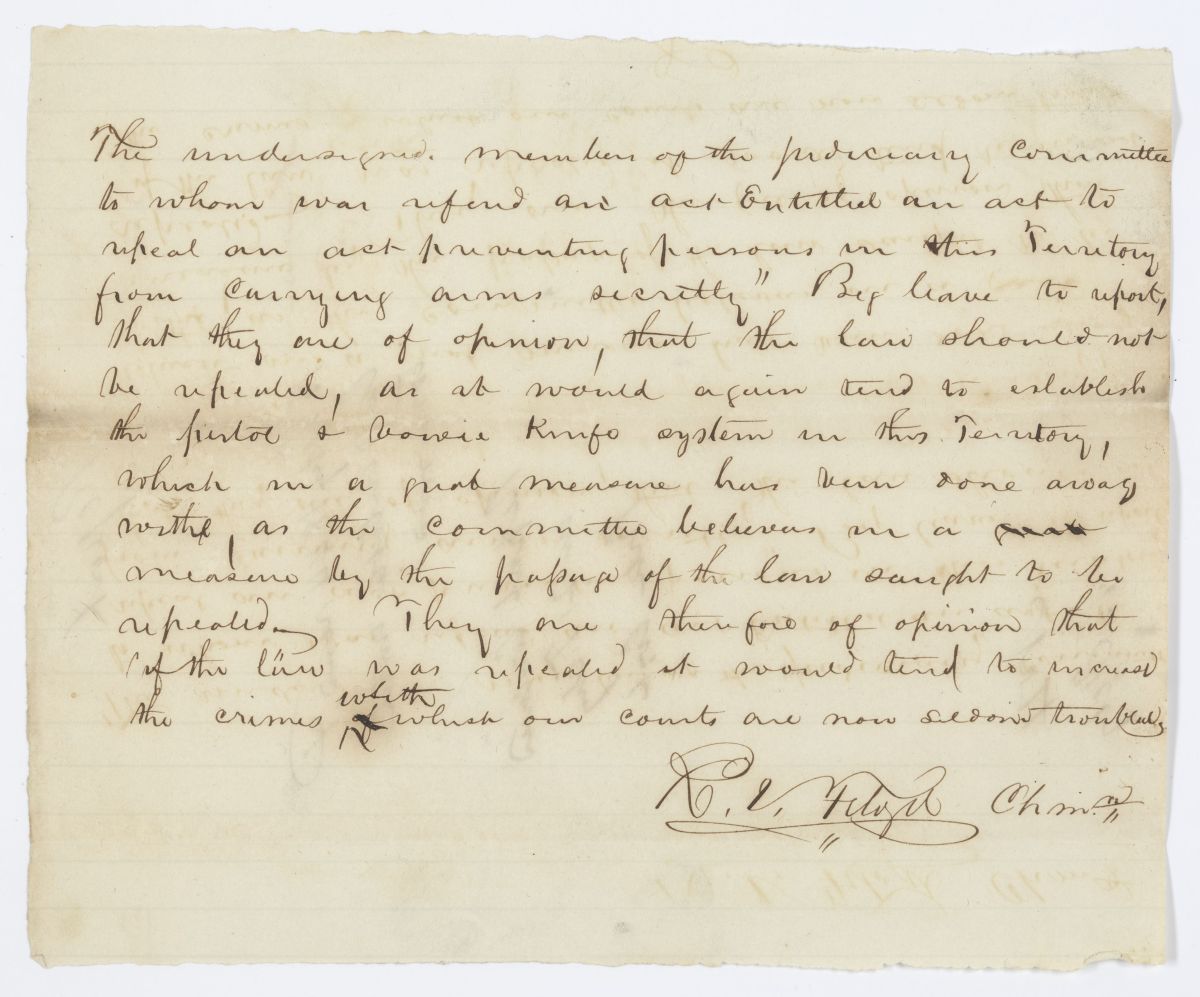 The undersigned. members of the judiciary committee
to whom was referd an act Entitled an act to
repeal an act preventing persons in this Territory
from carrying arms secretly" Beg leave to report,
that they are of opinion, that the law should not
be repealed, as it would again tend to establish
the pistol & bowie Knife system in this Territory,
which in a great measure has been done away
with, as the committee believes in a
measure by the passage of the law saught to be
repealed. They are therefore of opinion that
if the law was repealed it would tend to increase
the crimes with which our courts are now seldom troubled,
Chmn